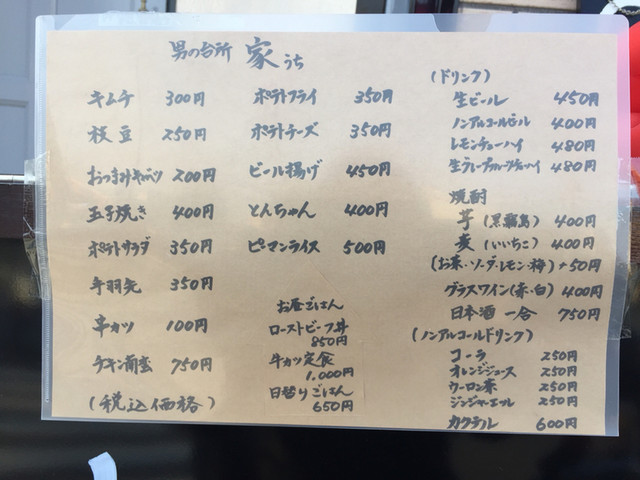 男の台所 家 うち
キムチ 300円
枝豆 250円
おつまみキャベツ 200円
玉子焼き 400円
ポテトサラダ 350円
手羽先 350円
串カツ 100円
チキン南蛮 750円
(税込価格)
ポテトフライ 350円
ポテトチーズ 350円
ビール揚げ 450円
とんちゃん 400円
ピーマンライス 500円
お昼ごはん
ローストビーフ丼
850円
牛カツ定食
1,000円
日替りごはん
650円
(ドリンク)
生ビール 450円
ノンアルコールビール 400円
レモンチューハイ 480円
生グレープフルーツチューハイ 480円
焼酎
芋(黒霧島) 400円
麦(いいちこ) 400円
(お茶・ソーダ・レモン・梅)+50円
グラスワイン(赤・白) 400円
日本酒 一合 750円
(ノンアルコールドリンク)
コーラ 250円
オレンジジュース 250円
ウーロン茶 250円
ジンジャーエール 250円
カクテル 600円